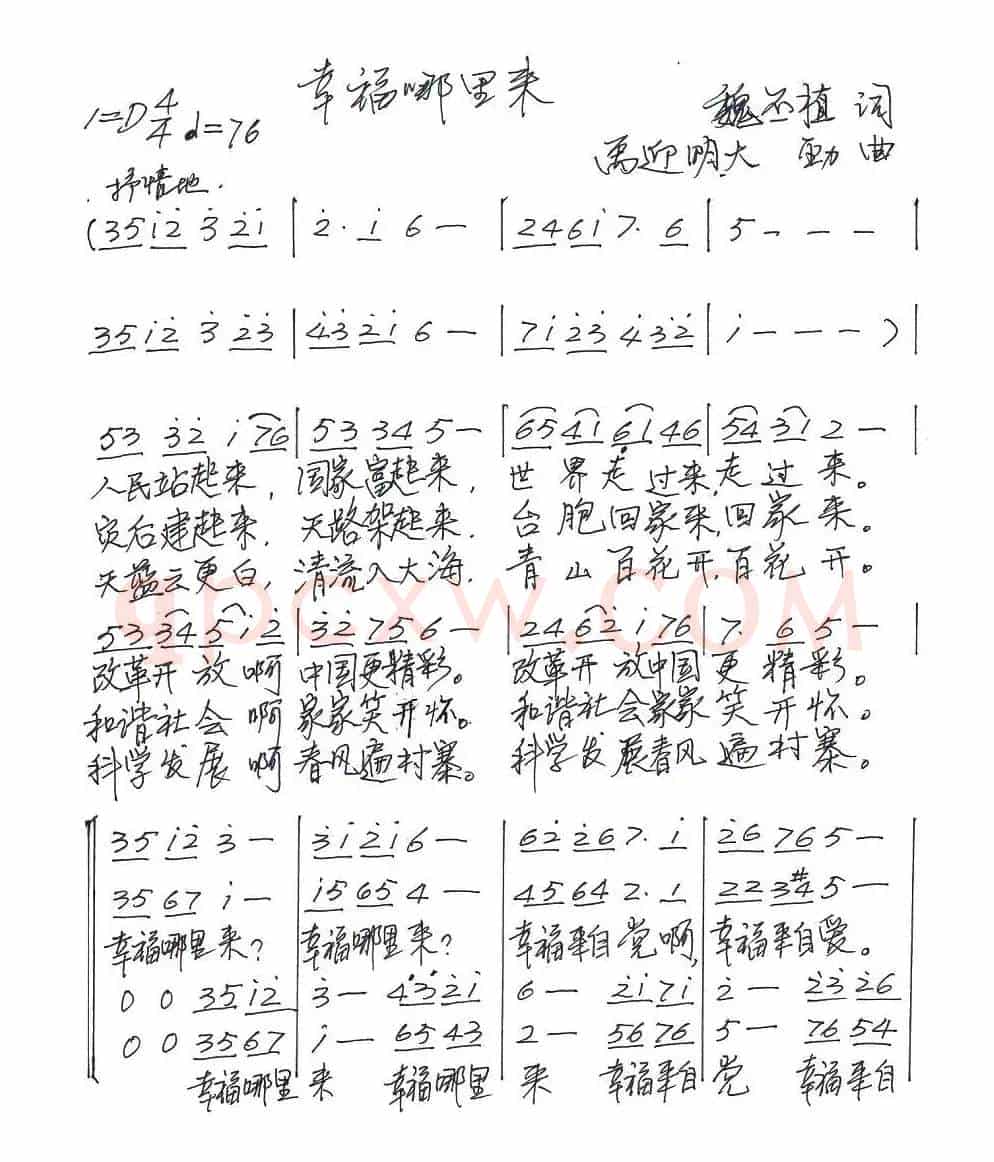 幸福哪里来
1=D 4/4 ♩=76
魏丕植 词
禹迎明 大勐 曲
抒情地.
(35i̇2̇ 3̇ 2̇i̇ | 2̇· i̇ 6 — | 246i̇ 7· 6 | 5 - - - |
35i̇2̇ 3̇ 2̇3̇ | 4̇3̇2̇i̇ 6 — | 7i̇2̇3̇ 4̇3̇2̇ | i̇ — — — ) |
53 3̇2̇ i̇ 76 | 53 34 5 — | 65 41 61 46 | 54 31 2 — |
人民站起来, 国家富起来, 世界走过来,走过来。
灾后建起来. 天路架起来. 台胞回家来,回家来。
天蓝云更白, 清流入大海. 青山百花开,百花开。
qpcxw.com
53 34 5i̇ 2̇ | 3̇2̇ 75 6 — | 24 62̇ i̇ 76 | 7· 6 5 — |
改革开放啊 中国更精彩。 改革开放中国更精彩。
和谐社会啊 家家笑开怀。 和谐社会家家笑开怀。
科学发展啊 春风遍村寨。 科学发展春风遍村寨。
35 i̇2̇ 3̇ — | 3̇i̇ 2̇i̇ 6 — | 62̇ 2̇6 7· i̇ | 2̇6 76 5 — |
35 67 i̇ — | i̇5 65 4 — | 45 64 2· 1 | 22 3#4 5 — |
幸福哪里来? 幸福哪里来? 幸福来自党啊, 幸福来自爱。
0 0 35 i̇2̇ | 3̇ — 4̇3̇ 2̇i̇ | 6 — 2̇i̇ 7i̇ | 2̇ — 2̇3̇ 2̇6 |
0 0 35 67 | i̇ — 65 43 | 2 — 56 76 | 5 — 76 54 |
幸福哪里 来 幸福哪里 来 幸福来自 党 幸福来自